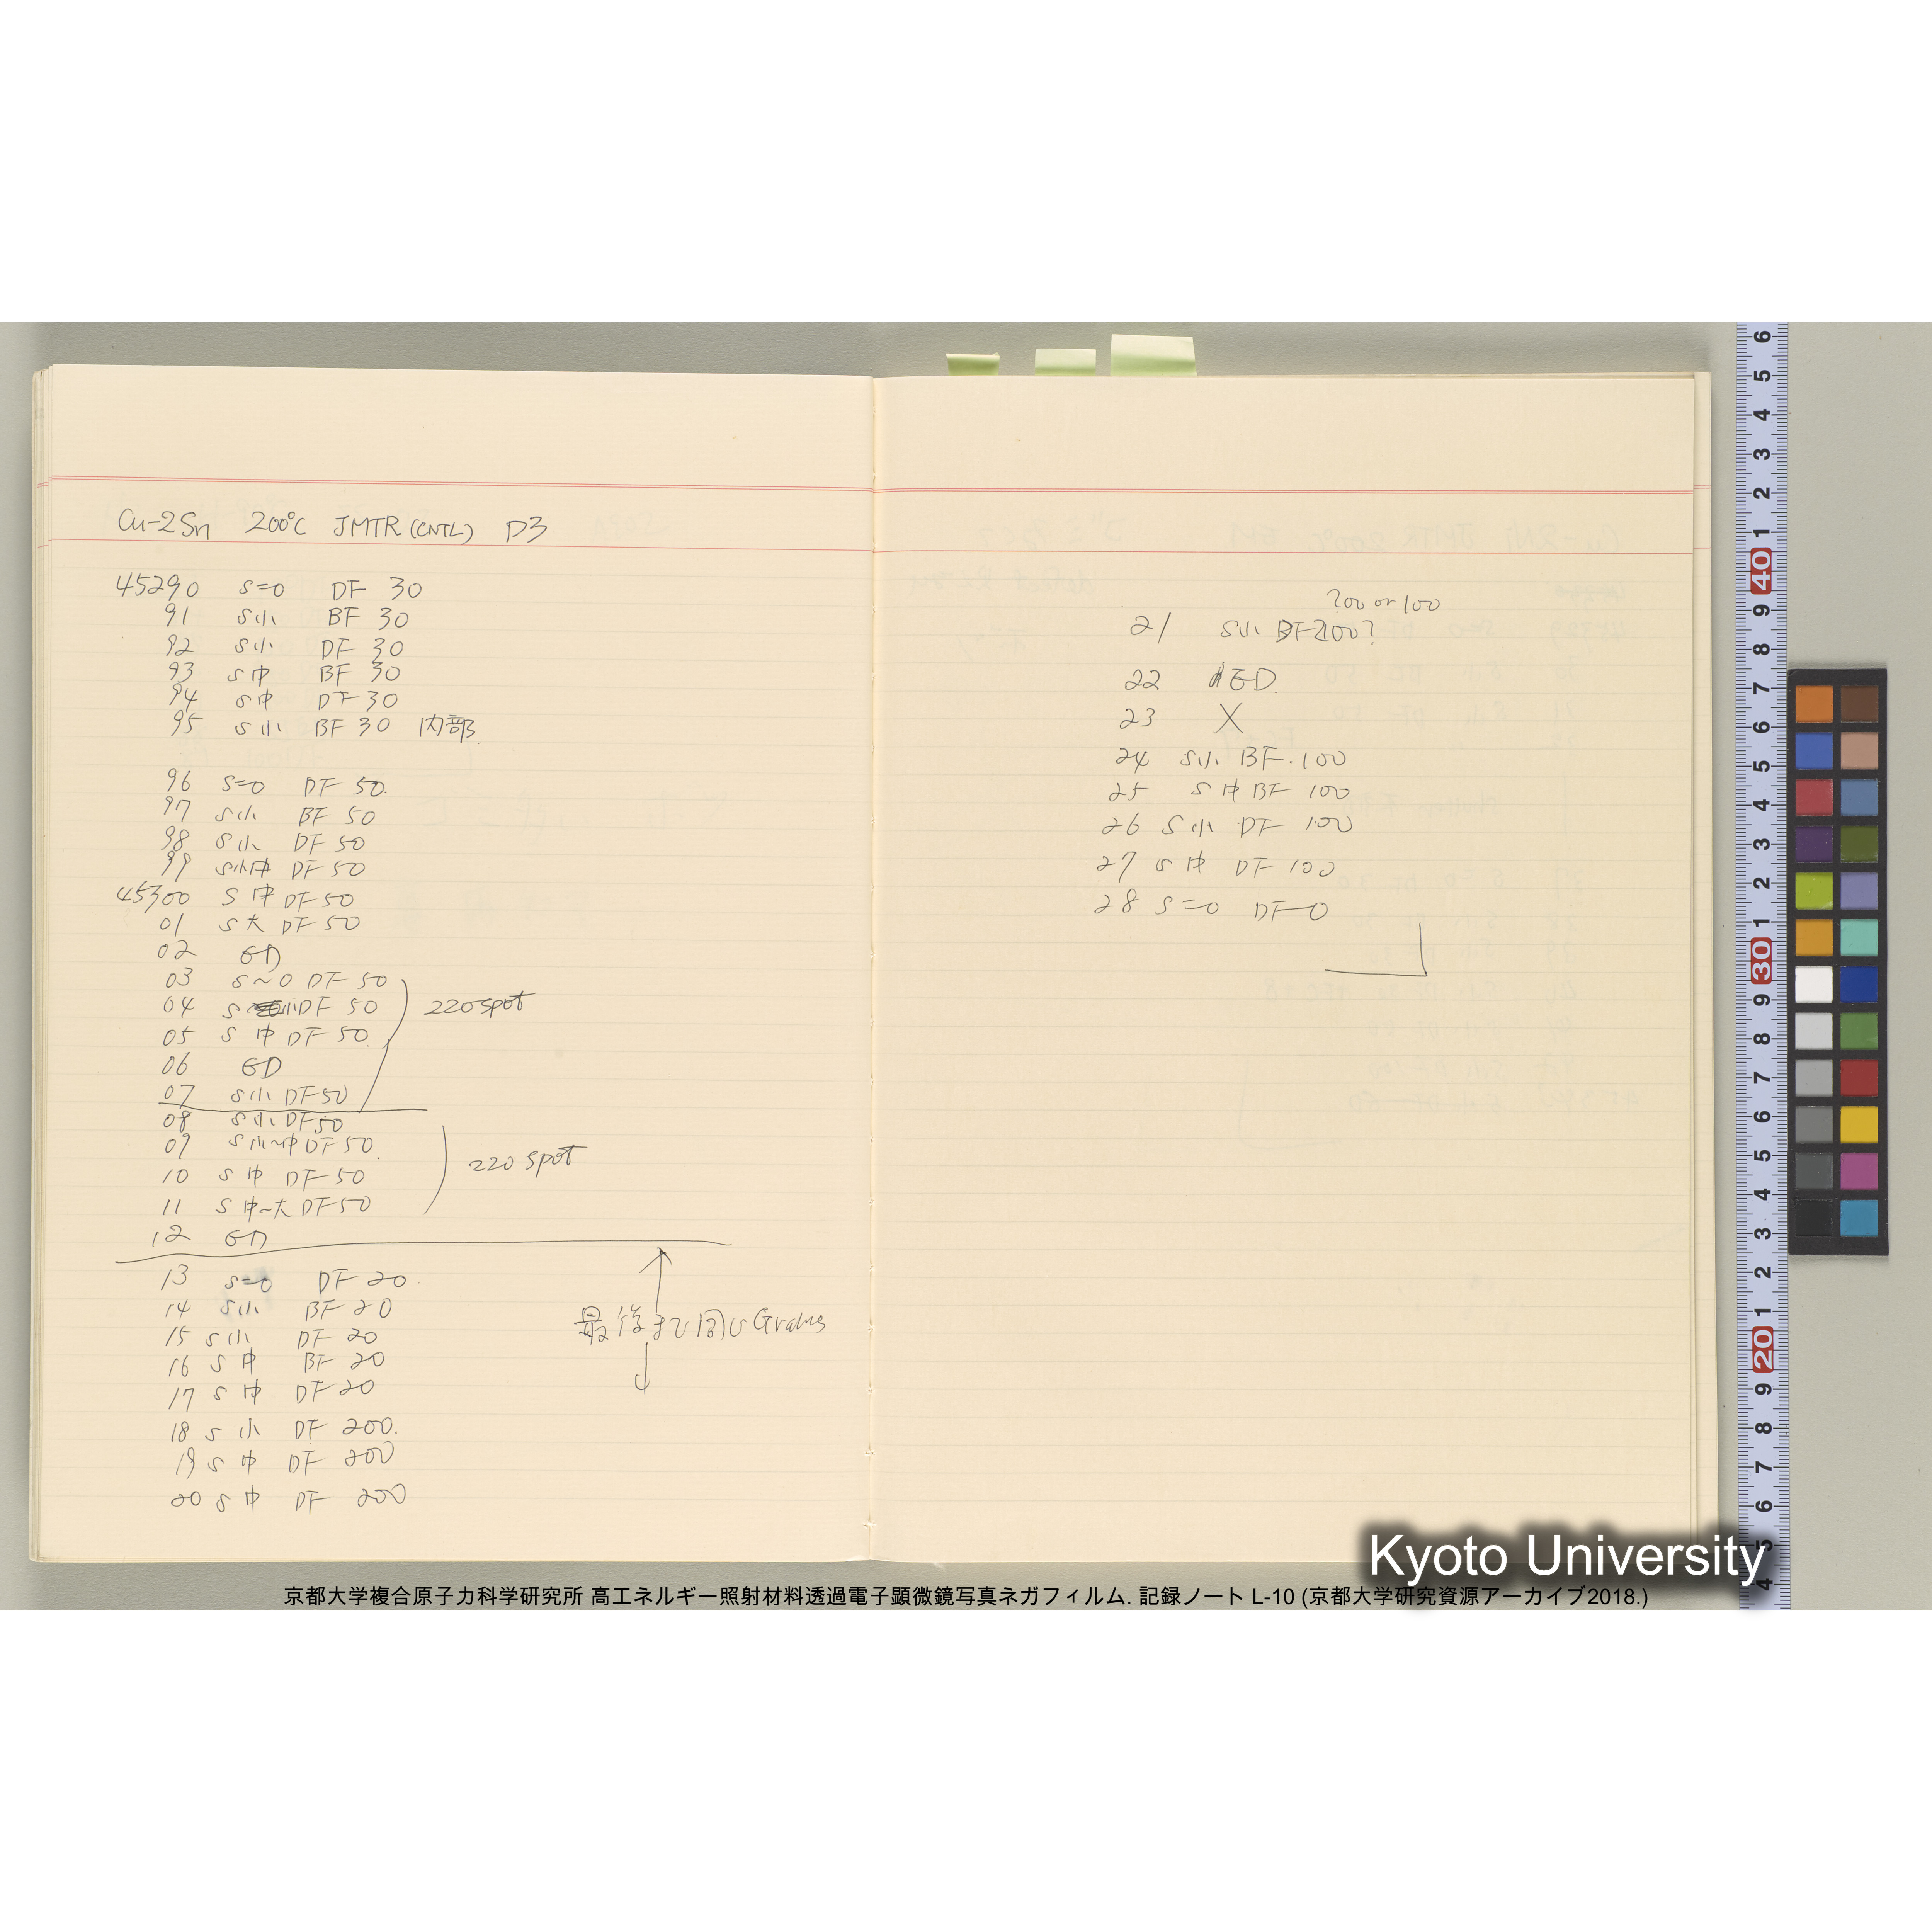 Cu-2Sn 200°C JMTR (CNTL) D3
45290 S=0 DF 30
91 S小 BF 30
92 S小 DF 30
93 S中 BF 30
94 S中 DF 30
95 S小 BF 30 内部
96 S=0 DF 50.
97 S小 BF 50
98 S小 DF 50
99 S小中 DF 50
45300 S中 DF 50
01 S大 DF 50
02 ED
03 S~0 DF 50
04 S小 DF 50 220 spot
05 S中 DF 50.
06 ED
07 S小 DF 50
08 S小 DF 50
09 S小~中 DF 50.
10 S中 DF 50 220 spot
11 S中~大 DF 50
12 ED
13 S=0 DF 20
14 S小 BF 20
15 S小 DF 20
最後まで同じ Grains
16 S中 BF 20
17 S中 DF 20
18 S小 DF 200.
19 S中 DF 200
20 S中 DF 200
200 or 100
21 S小 BF 100?
22 ED.
23 X
24 S小 BF.100
25 S中 BF 100
26 S小 DF 100
27 S中 DF 100
28 S=0 DF 0
Kyoto University
京都大学複合原子力科学研究所 高エネルギー照射材料透過電子顕微鏡写真ネガフィルム. 記録ノート L-10 (京都大学研究資源アーカイブ2018.)